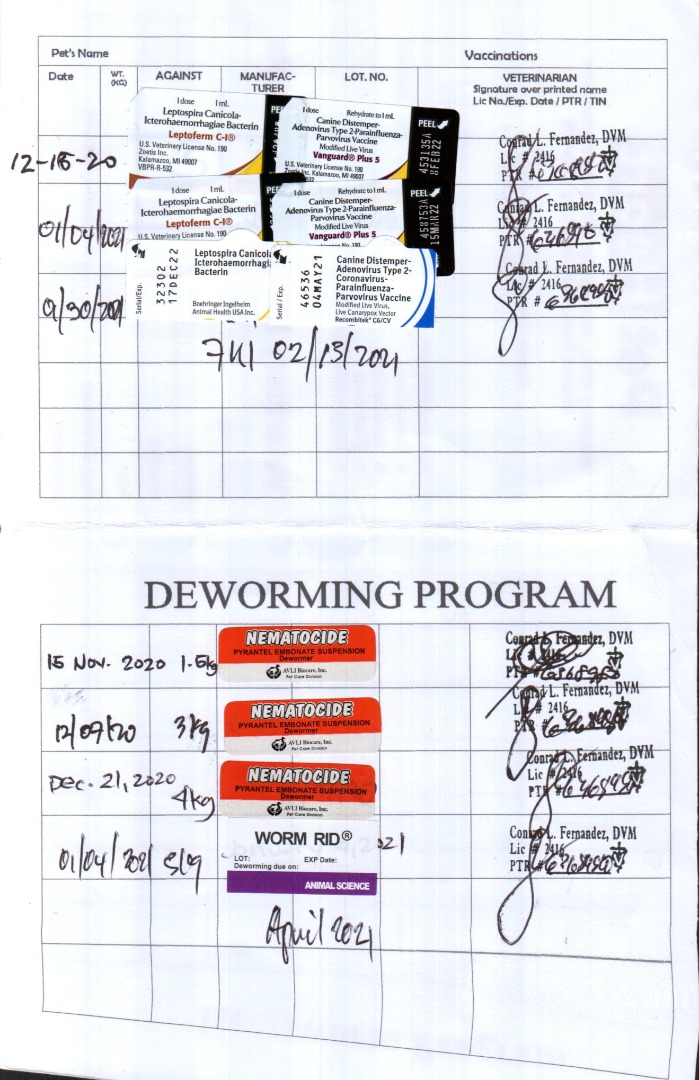 Pet's Name
Vaccinations
Date
WT. (KG)
AGAINST
MANUFAC-TURER
LOT. NO.
VETERINARIAN
Signature over printed name
Lic No./Exp. Date / PTR / TIN
12-15-20
1 dose 1 mL
Leptospira Canicola-
Icterohaemorrhagiae Bacterin
Leptoferm C-I®
U.S. Veterinary License No. 190
Zoetis Inc.
Kalamazoo, MI 49007
VBPR-R-532
1 dose Rehydrate to 1 mL
Canine Distemper-
Adenovirus Type 2-Parainfluenza-
Parvovirus Vaccine
Modified Live Virus
Vanguard® Plus 5
U.S. Veterinary License No. 190
Zoetis Inc. Kalamazoo, MI 49007
PEEL
453135A
8FEB22
Conrad L. Fernandez, DVM
Lic # 2416
PTR #
01/04/2021
1 dose 1 mL
Leptospira Canicola-
Icterohaemorrhagiae Bacterin
Leptoferm C-I®
U.S. Veterinary License No. 190
1 dose Rehydrate to 1 mL
Canine Distemper-
Adenovirus Type 2-Parainfluenza-
Parvovirus Vaccine
Modified Live Virus
Vanguard® Plus 5
PEEL
458753A
15MAR22
Conrad L. Fernandez, DVM
Lic # 2416
PTR #
Serial/Exp.
32302
17DEC22
Leptospira Canicola
Icterohaemorrhagi
Bacterin
Boehringer Ingelheim
Animal Health USA Inc.
Serial / Exp.
46536
04MAY21
Canine Distemper-
Adenovirus Type 2-
Coronavirus-
Parainfluenza-
Parvovirus Vaccine
Modified Live Virus,
Live Canarypox Vector
Recombitek® C6/CV
Conrad L. Fernandez, DVM
Lic # 2416
PTR #
02/13/2021
DEWORMING PROGRAM
15 Nov. 2020 1.5kg
NEMATOCIDE
PYRANTEL EMBONATE SUSPENSION
Dewormer
AVLI Biocare, Inc.
Pet Care Division
Conrad L. Fernandez, DVM
Lic # 2416
PTR #
12/07/20 3kg
NEMATOCIDE
PYRANTEL EMBONATE SUSPENSION
Dewormer
AVLI Biocare, Inc.
Pet Care Division
Conrad L. Fernandez, DVM
Lic # 2416
PTR #
Dec. 21, 2020
4kg
NEMATOCIDE
PYRANTEL EMBONATE SUSPENSION
Dewormer
AVLI Biocare, Inc.
Pet Care Division
Conrad L. Fernandez, DVM
Lic # 2416
PTR #
01/04/2021 5kg
WORM RID®
LOT: EXP Date:
Deworming due on:
ANIMAL SCIENCE
021
Conrad L. Fernandez, DVM
Lic # 2416
PTR #
April 2021